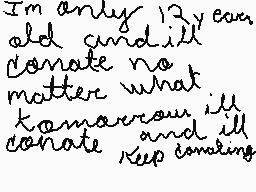 Im only 12 y ears
old and ill
conate no
matter what
tomorrow ill
conate and ill
Keep conating